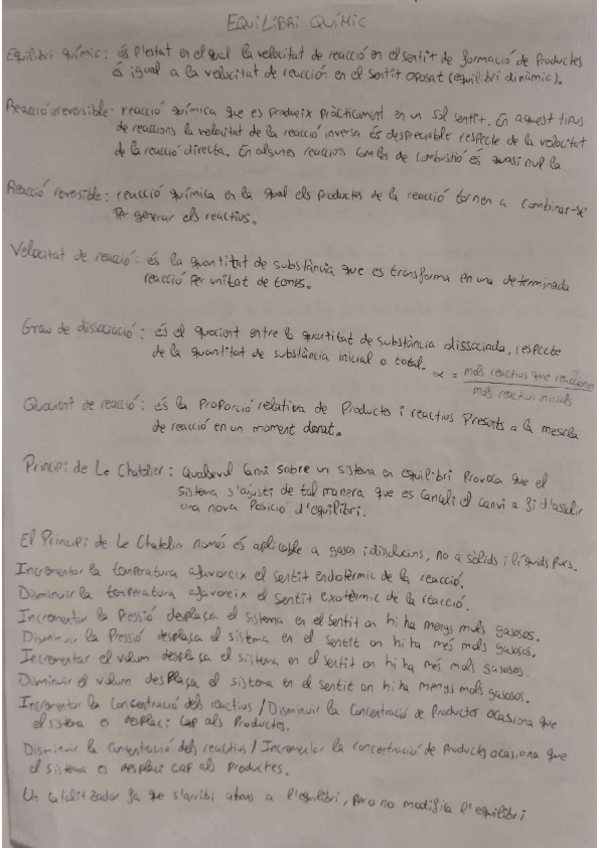 EQUILIBRI QUÍMIC
Equilibri químic: és l'estat en el qual la velocitat de reacció en el sentit de formació de Productes
és igual a la velocitat de reacción en el sentit oposat (equilibri dinàmic).
Reacció irreversible: reacció química que es produeix pràcticament en un sol sentit. En aquest tipus
de reaccions la velocitat de la reacció inversa és despreciable respecte de la velocitat
de la reacció directa. En algunes reaccions com les de combustió és quasi nul la
Reacció reversible: reacció química en la qual els productes de la reacció tornen a combinar-se
Per generar els reactius.
Velocitat de reacció: és la quantitat de substància que es transforma en una determinada
reacció Per unitat de temps.
Grau de dissociació: és el quocient entre la quantitat de substància dissociada, respecte
de la quantitat de substància inicial o total.
∝ = mols reactius que reaccionen
mols reactius inicials
Quocient de reacció: és la proporció relativa de Productes i reactius Presents a la mescla
de reacció en un moment donat.
Principi de Le Chatelier: Qualsevol canvi sobre un sistema en equilibri Provoca que el
sistema s'ajusti de tal manera que es cancel·li el canvi a fi d'assolir
una nova Posició d'equilibri.
El Principi de Le Chatelier només és aplicable a gasos i dissolucions, no a sòlids i líquids purs.
Incrementar la temperatura afavoreix el sentit endotèrmic de la reacció.
Disminuir la temperatura afavoreix el sentit exotèrmic de la reacció.
Incrementar la Pressió desplaça el sistema en el sentit on hi ha menys mols gasosos.
Disminuir la Pressió desplaça el sistema en el sentit on hi ha més mols gasosos.
Incrementar el volum desplaça el sistema en el sentit on hi ha més mols gasosos.
Disminuir el volum desplaça el sistema en el sentit on hi ha menys mols gasosos.
Incrementar la concentració dels reactius / Disminuir la concentració de productes ocasiona que
el sistema es desplaci cap als Productes.
Disminuir la concentració dels reactius / Incrementar la concentració de productes ocasiona que
el sistema es desplaci cap als Productes.
Un catalitzador fa que s'arribi abans a l'equilibri, pero no modifica l'equilibri